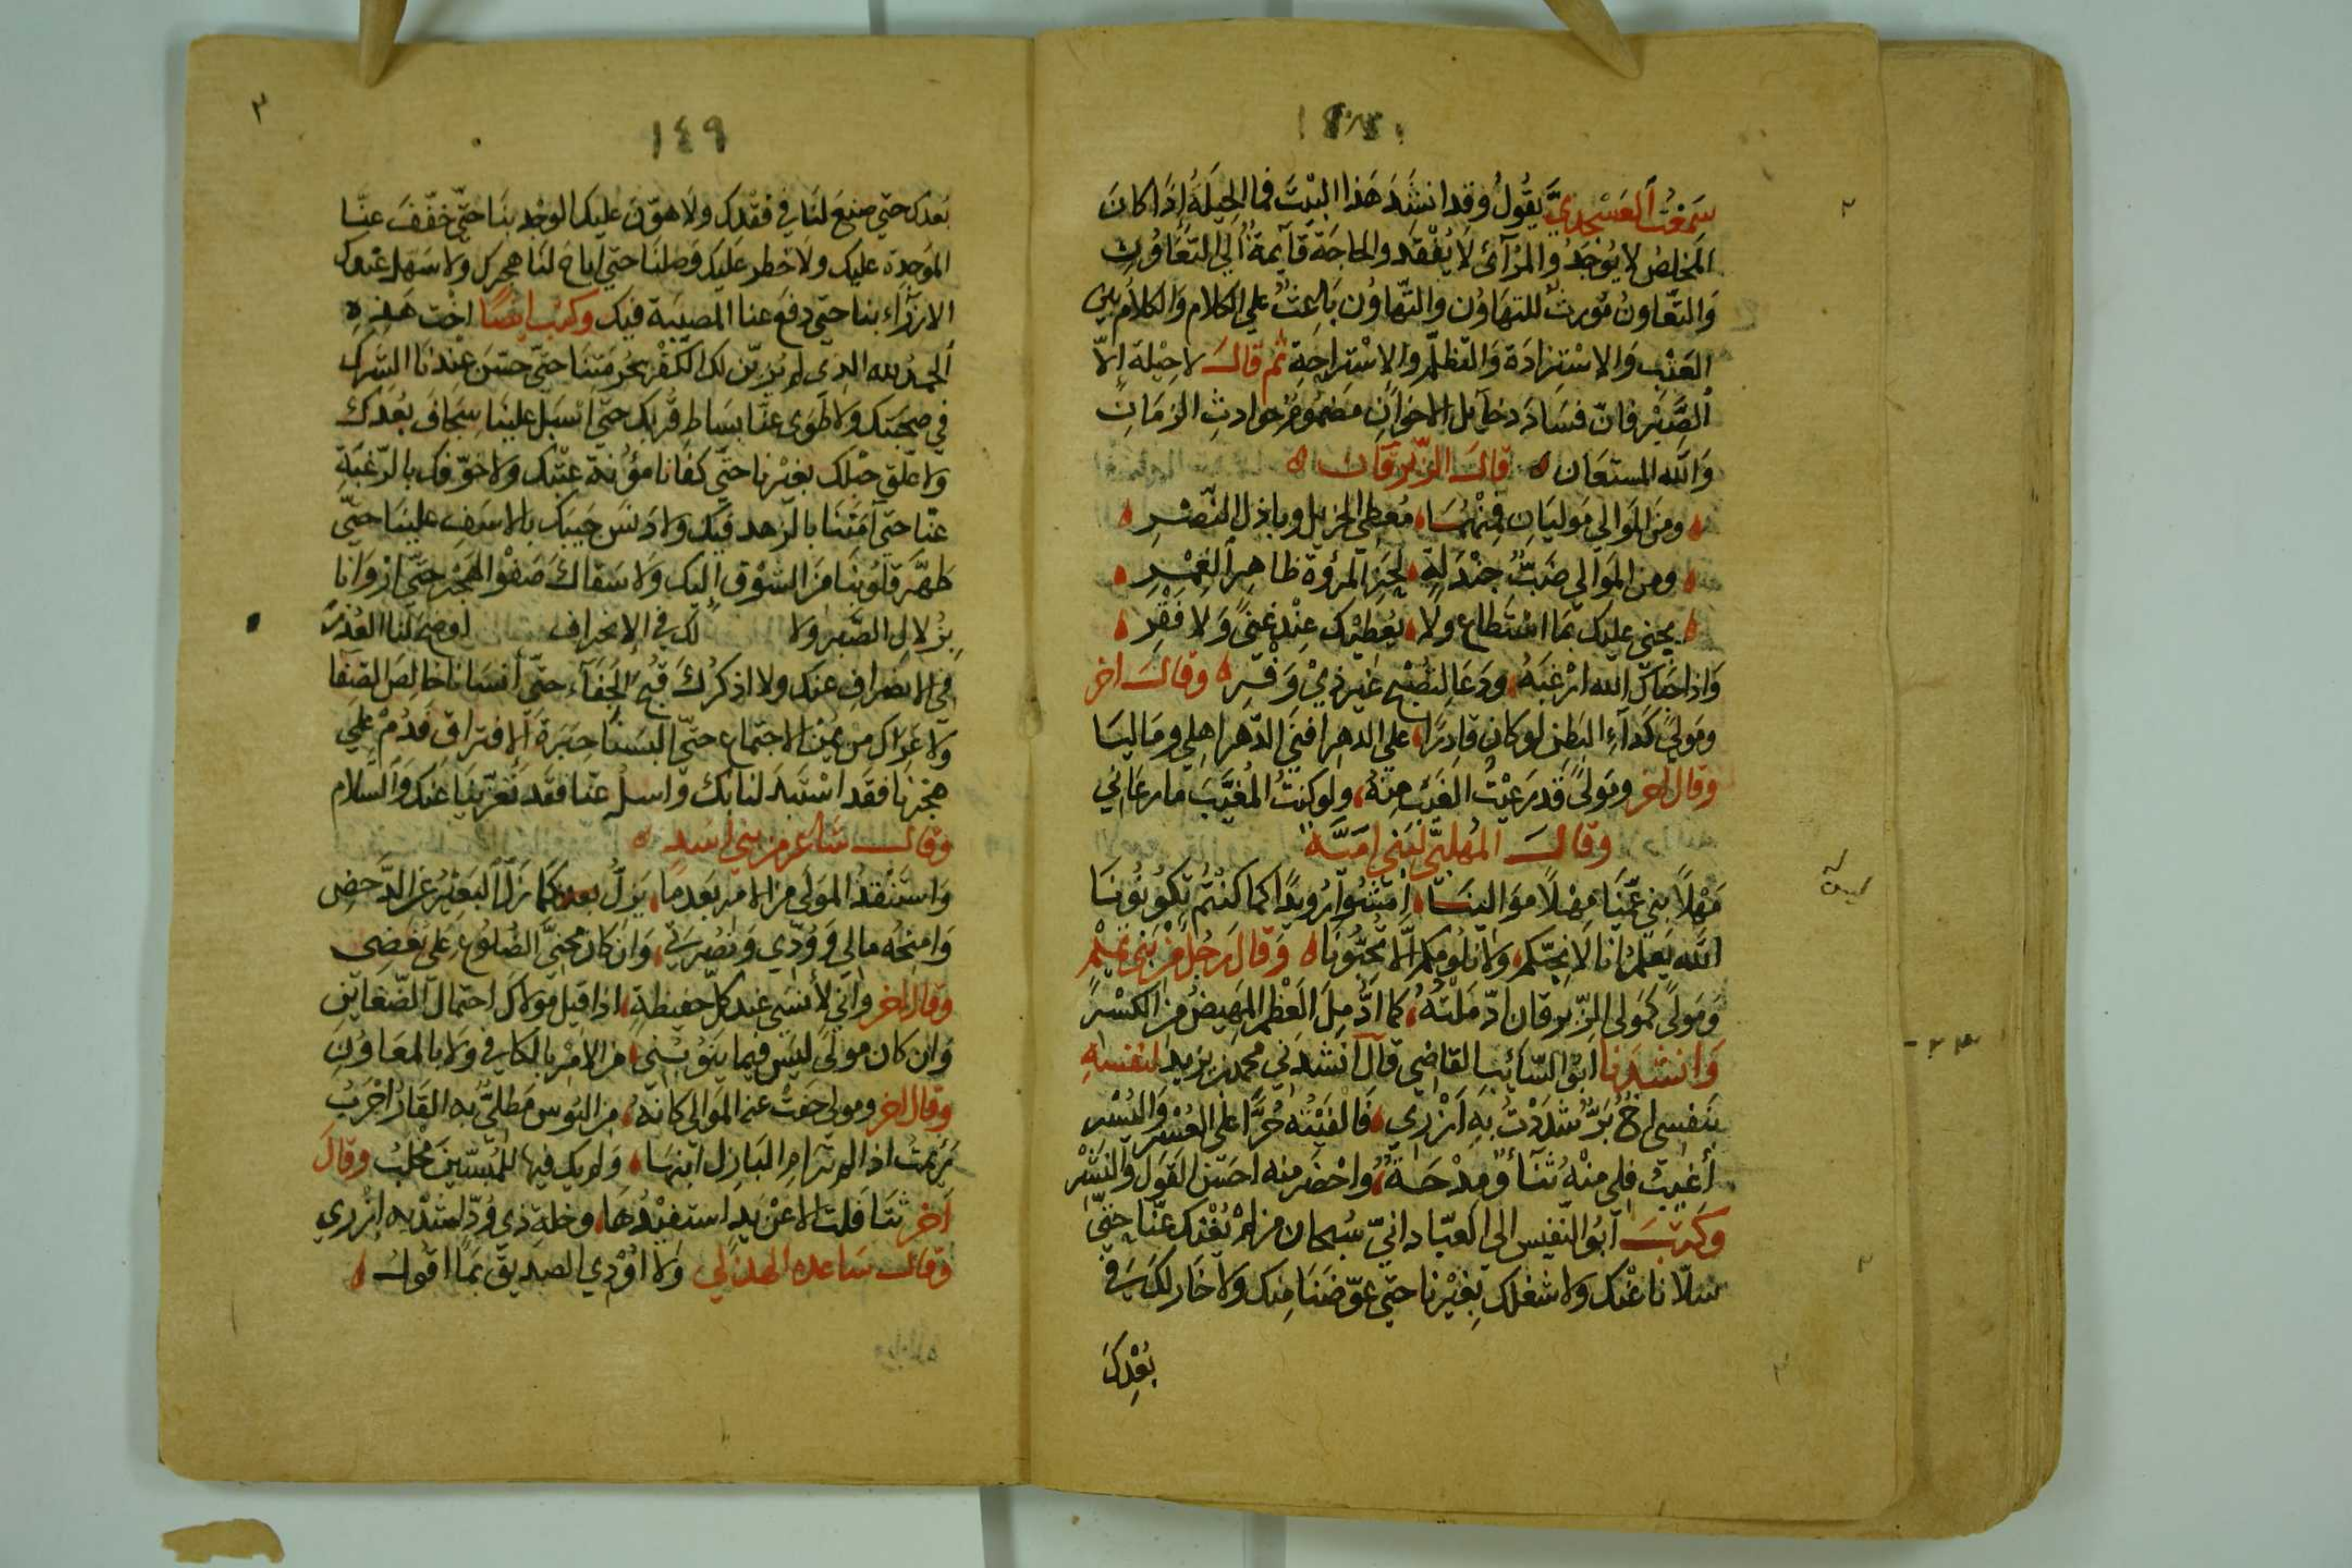 سَمِعْتُ العَسْجَديَّ يَقُولُ وَقد انشَدَ هَذا البَيْتَ فما الحِيلَةُ إذَا كانَ
المخلِصُ لا يُوجَدُ وَالمُرَآئ لا يُفْقَد والحاجَة قَآئِمةٌ إلى التَّعَاوُن
وَالتَّعَاونُ مُورِثٌ للتهَاوُن والتّهاوُن بَاعِثٌ على الكلام وَالكلامُ بين
العَتْب وَالاسْتِزادَة وَالتظلّم والاسْتِراحة ثم قال لا حِيلة الا
الصَّبْر فان فسَادَ دخآيل الاخوَانِ مضمومٌ حوادثِ الزمَان
وَاللّه المستعَان قال الزّبْرقان
ومن الموالي مَوليَانِ فمنهُمَا مُعطِي الجزيل وباذل النّصْرِ
ومن المَوالي ضَبُّ جَنْدَلةٍ لَحِزُ المرؤة ظاهِرُ الغِمْرِ
يجني عليك بما اسْتَطاع ولا يُعْطِيْك عِنْد غِنًى وَلا فَقْرِ
وقال اخر
ومَولىً كَدَآءِ البَطنِ لو كان قادِرًا على الدهرِ افنى الدّهرَ اهلي ومَاليَا
وقال اخر ومَولىً قَد رَعَيْتُ الغَيْبَ مِنهُ ولو كنتُ المُغيَّبَ ما رعَاني
وقال المُهلبيّ لبَني اميَّة
مَهْلًا بني عَمِّنَا مهْلًا موَاليْنَا امْشُوا رُوَيْدًا كما كنْتُم تكوُنوُنا
اللّه يعَلمُ انا لا نحِبّكم ولا نلُومُكم الّا تحِبّونَا وَقال رَجُل مِن بَني تميم
وَمَولىً كمَولى الزّبرقان ادّمَلْتُهُ كما ادَّمِلَ العَظْم المَهِيضُ من الكَسْرِ
وَانشدَنا ابُو السّائب القاضي قال انشدَني محمد بن يزيد لنفسهِ
بنَفسي اخٌ بَرٌّ شدَدْتُ بهِ اَزْرِي فَالفَيْتُه حُرًّا على العُسْرِ وَاليُسْرِ
أغيبُ فلي منْهُ ثنَآءٌ وَمِدْحَةٌ وَاحْضر منه احسَن القول وَالبِشْرِ
وَكتَبَ ابُو النّفيس الى العبّاداني سُبحان من لم يُغْنِك عنّا حتّى
سَلّانا عَنْك ولا شغلك بغيْرنا حتّى عَوّضَنَا مِنك ولا خَار لكَ في
بُعْدِكَ
١٤٩
بُعدك حتّى صَنِعَ لنَا في فقْدِك ولا هوّنَ عليكَ الوجْد بنَا حتّى خفّفَ عنّا
الموَجدة عليك ولا حظر عليك وَصْلنَا حتّى أباحَ لنَا هَجرك ولا سَهّل عَليك
الازرَآء بنا حتّى دفعَ عنا المصيْبَة فيك وكتب ايضًا اخت هذه
الحمدُ لله الذي لم يُزيّن لكَ الكفرَ بحُرمَتِنَا حتّى حسّنَ عِنْدنا الشرك
في صحبَتك ولا طَوى عنّا بسَاط قرْبك حتّى اسْبَل علينَا سِجَافَ بُعْدك
ولا علّق حَبْلك بغيْرنا حتّى كفانا مؤنة عَتْبك ولا خوّفك بالرّغبَةِ
عنّا حتّى آمَننَا بالزهد فيك ولا دنس جيبَك بالاسَفِ علينَا حتّى
طَهَّرَ قلوُبَنا مِنَ الشوْق اليك ولا سَقاكَ صَفْوَ الهَجْر حتّى ارْوَانا
بِزُلال الصَّبر ولا لك في الانحراف اوضحَ لنا العُذر
في الانصرافِ عنك ولا اذكرك قبْح الجفآء حتّى أنسَانَا خالِصَ الصَّفا
ولا عَرّاك من يُمْن الاجتماع حتّى البسَنَا حِبَرَة الافتراقِ فدُمْ على
هجرنا فقَد اسْتبَدَلنا بك وَاسلُ عنّا فقد تعَزّيْنا عنك وَالسلام
وقال شاعر من بني اسد
وَاسْتنقذُ المَولى من الامر بَعدَما يَزلّ كما زَلّ البَعيْرُ عَن الدَّحضِ
وَامنحُه مالي وَوُدّي وَنصُرَتي وَان كان محنيَّ الضُلوُع على بُغضِي
وقال اخر وإني لأنسَى عند كلّ حفيظةٍ اذا قيل مَولاكَ احتمالَ الضّغاينِ
وَان كان مولىً ليسَ فيما يَنوُبُني من الامْر بالكافي وَلا بالمعَاونِ
وقال اخر ومولى جفتْ عنه المَوالي كانهُ من البُوس مَطليٌّ به القَارُ اجْرَبُ
رَئِمتُ اذا لم تَرْأمِ البَازِلُ ابنهَا وَلم يكُ فيها للمُبسّينَ مَحلبُ وقال
آخر تثَاقَلتُ الا عَنْ يَدٍ استَفيْدُهَا وخلة ذي وُدّ اشدّ به ازري
وقال سَاعده الهذلي ولا اوُذي الصديق بمَا اقوُل